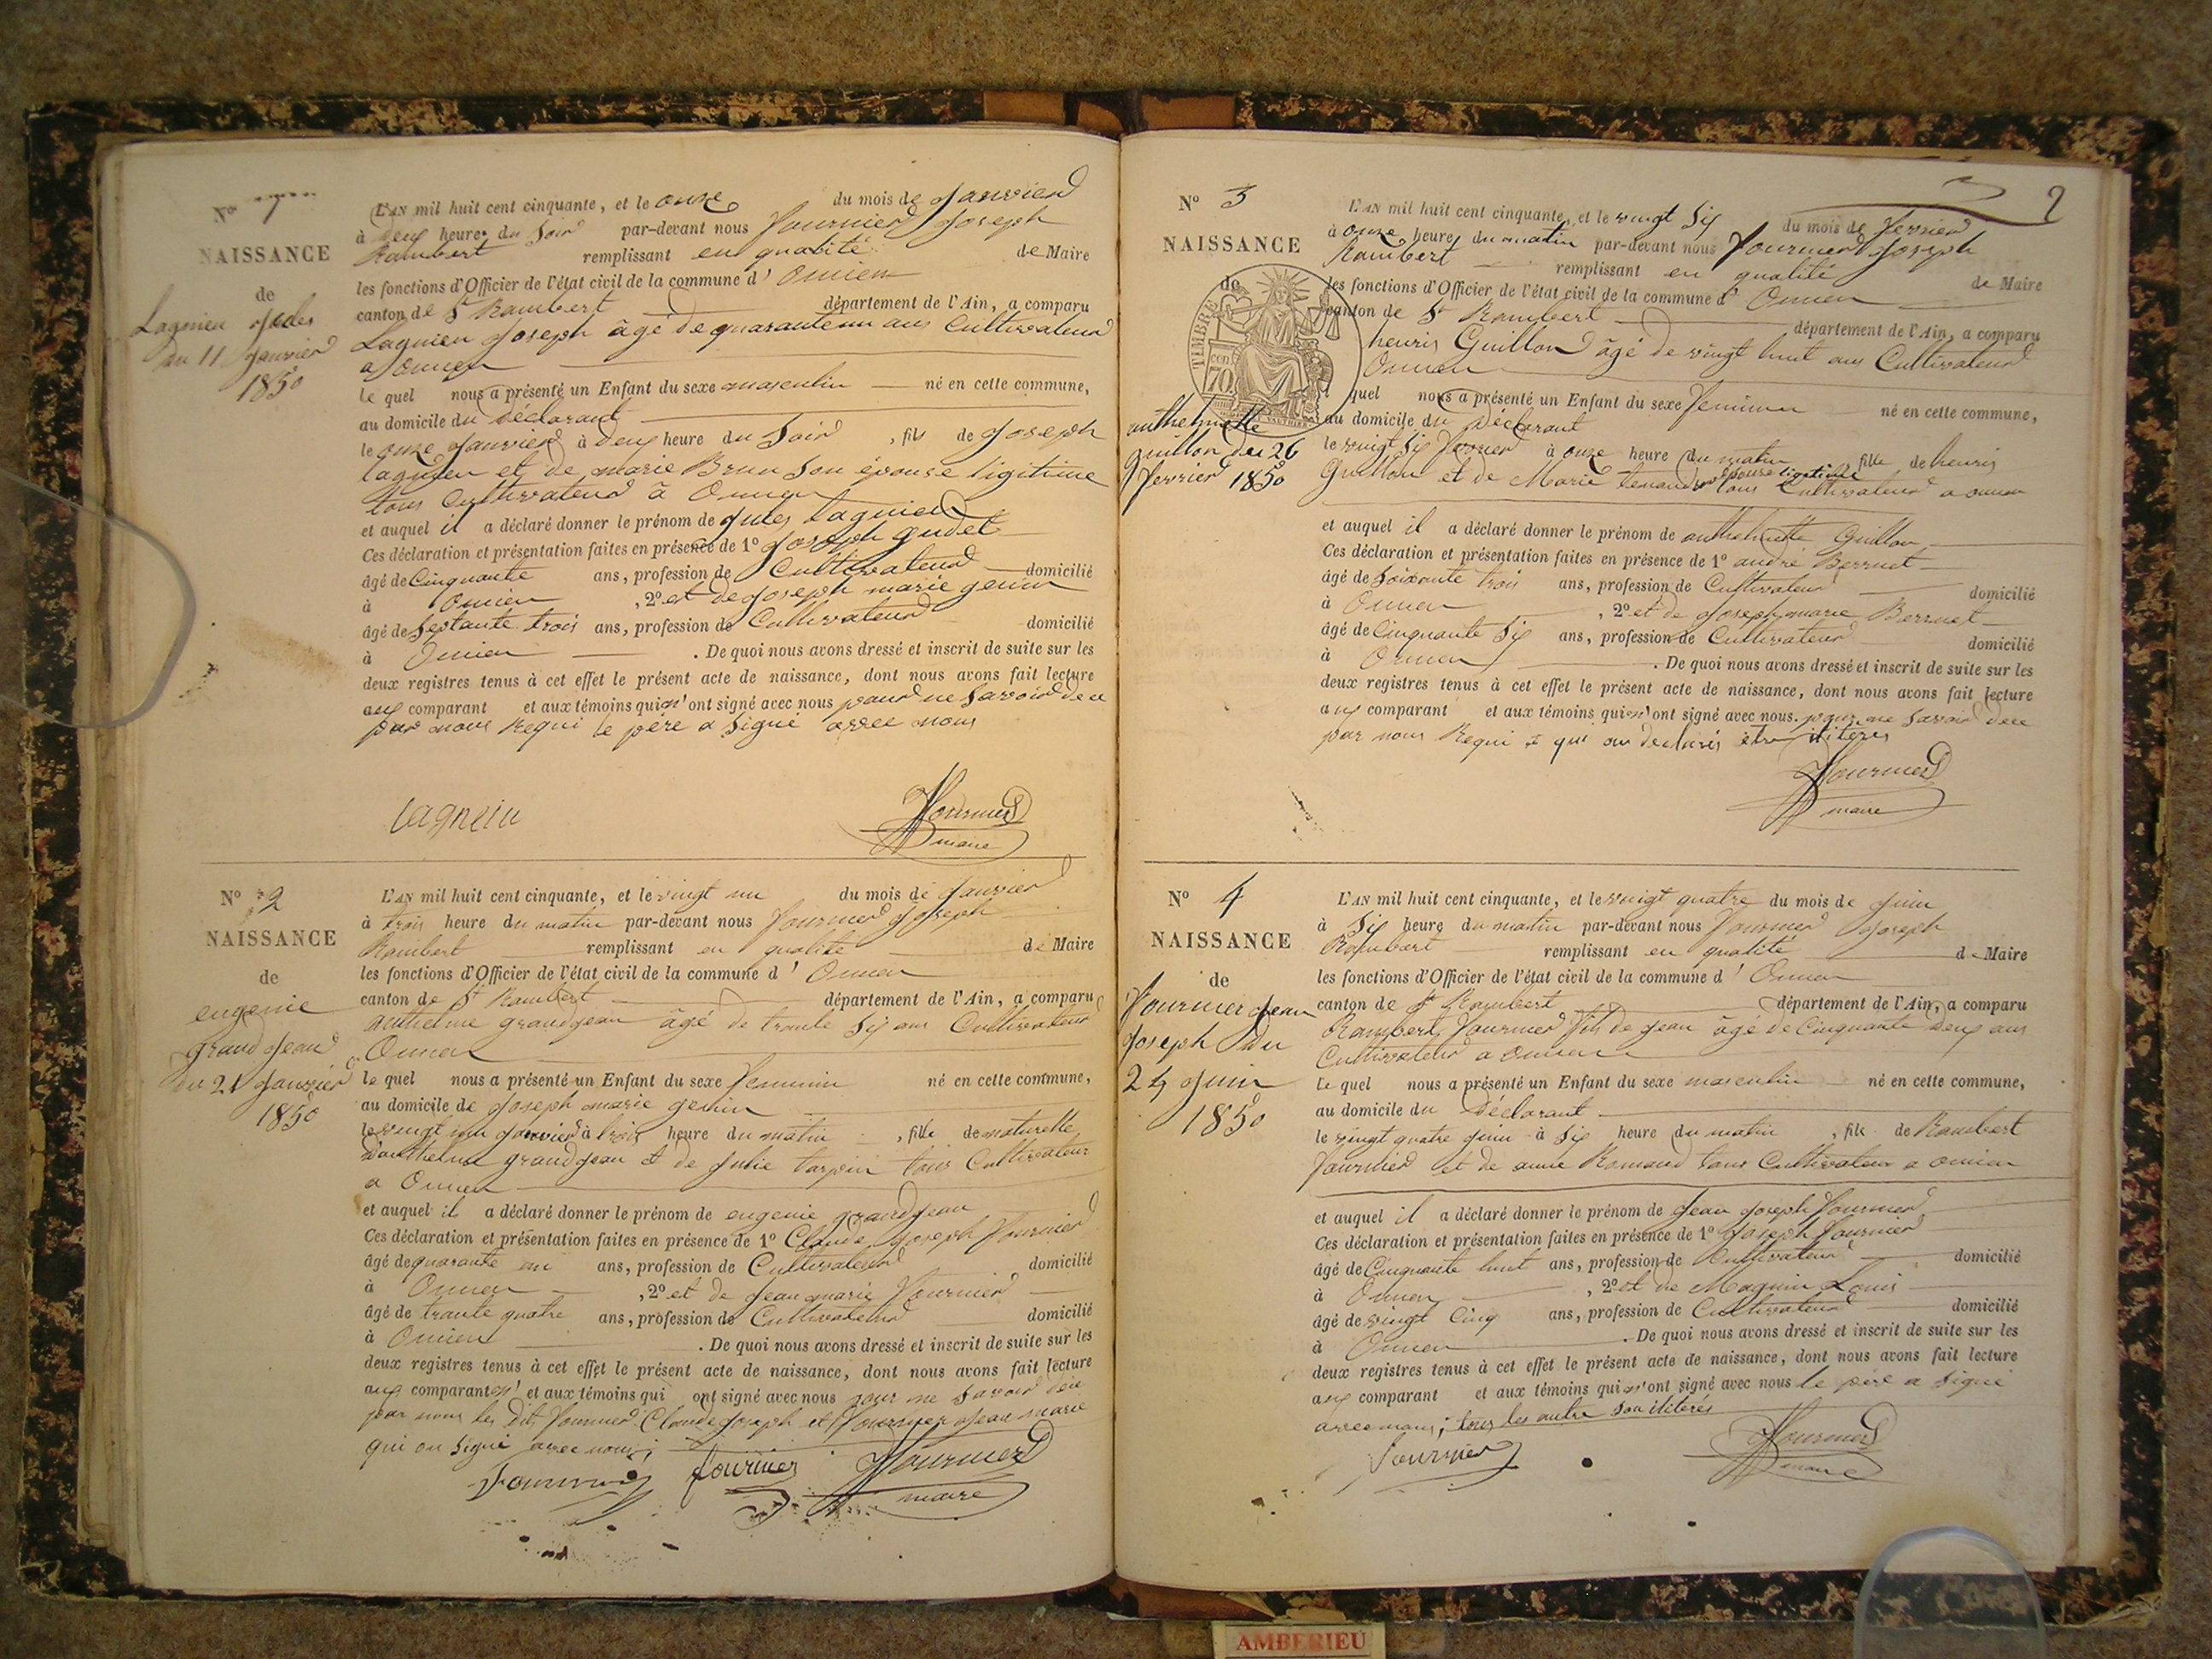 N° 1
NAISSANCE
de
Lagnieu Jules
du 11 Janvier
1850
L'AN mil huit cent cinquante, et le onze du mois de Janvier
à deux heures du soir par-devant nous Fournier Joseph
Rambert remplissant en qualité de Maire
les fonctions d'Officier de l'état civil de la commune d' Oncieu
canton de St Rambert département de l'Ain, a comparu
Lagnieu Joseph âgé de quarante un ans Cultivateur
a Oncieu
le quel nous a présenté un Enfant du sexe masculin né en cette commune,
au domicile du Déclarant
le onze Janvier à deux heure du Soir, fils de Joseph
lagnieu et de marie Brun son épouse ligitime
tous Cultivateur à Oncieu
et auquel il a déclaré donner le prénom de Jules Lagnieu
Ces déclaration et présentation faites en présence de 1° Joseph gudet
âgé de Cinquante ans, profession de Cultivateur domicilié
à Oncieu, 2° et de Joseph marie genin
âgé de Septante trois ans, profession de Cultivateur domicilié
à Oncieu. De quoi nous avons dressé et inscrit de suite sur les
deux registres tenus à cet effet le présent acte de naissance, dont nous avons fait lecture
aux comparant et aux témoins qui n'ont signé avec nous pour ne Savoir de ce
par nous Requi le père a Signé avec nous
Lagneiu
Fournier
maire
N° 2
NAISSANCE
de
eugenie
grand Jean
du 21 Janvier
1850
L'AN mil huit cent cinquante, et le vingt un du mois de Janvier
à trois heure du matin par-devant nous Fournier Joseph
Rambert remplissant en qualité de Maire
les fonctions d'Officier de l'état civil de la commune d' Oncieu
canton de St Rambert département de l'Ain, a comparu
anthelme grandjean âgé de trante Six ans Cultivateur
a Oncieu
le quel nous a présenté un Enfant du sexe Feminin né en cette commune,
au domicile de Joseph marie genin
le vingt un Janvier à trois heure du matin, fille de naturelle
d'anthelme grandjean et de Julie tarpin tous Cultivateur
a Oncieu
et auquel il a déclaré donner le prénom de eugenie grandjean
Ces déclaration et présentation faites en présence de 1° Claude Joseph Fournier
âgé de quarante un ans, profession de Cultivateur domicilié
à Oncieu, 2° et de Jean marie Fournier
âgé de trante quatre ans, profession de Cultivateur domicilié
à Oncieu. De quoi nous avons dressé et inscrit de suite sur les
deux registres tenus à cet effet le présent acte de naissance, dont nous avons fait lecture
aux comparant et aux témoins qui ont signé avec nous pour ne Savoir
par nous les Dits Fournier Claude Joseph et Fournier Jean marie
qui on Signé avec nous;
Fournier Fournier Fournier
maire
2
N° 3
NAISSANCE
de
TIMBRE
70
anthelmette
guillon du 26
Fevrier 1850
L'AN mil huit cent cinquante, et le vingt Six du mois de Fevrier
à onze heure du matin par-devant nous Fournier Joseph
Rambert remplissant en qualité de Maire
les fonctions d'Officier de l'état civil de la commune d' Oncieu
canton de St Rambert département de l'Ain, a comparu
henris Guillon âgé de vingt huit ans Cultivateur
Oncieu
le quel nous a présenté un Enfant du sexe Feminin né en cette commune,
au domicile du Déclarant
le vingt Six Fevrier à onze heure du matin fille de henris
Guillon et de Marie son épouse ligitime tous Cultivateur a oncieu
et auquel il a déclaré donner le prénom de anthelmette Guillon
Ces déclaration et présentation faites en présence de 1° andré Berruet
âgé de Soixante trois ans, profession de Cultivateur domicilié
à Oncieu, 2° et de Joseph marie Berruet
âgé de Cinquante Six ans, profession de Cultivateur domicilié
à Oncieu. De quoi nous avons dressé et inscrit de suite sur les
deux registres tenus à cet effet le présent acte de naissance, dont nous avons fait lecture
aux comparant et aux témoins qui n'ont signé avec nous pour ne Savoir de ce
par nous Requi et qui on declarés être iliteres
Fournier
maire
N° 4
NAISSANCE
de
Fournier Jean
Joseph du
24 Juin
1850
L'AN mil huit cent cinquante, et le vingt quatre du mois de Juin
à Six heure du matin par-devant nous Fournier Joseph
Rambert remplissant en qualité de Maire
les fonctions d'Officier de l'état civil de la commune d' Oncieu
canton de St Rambert département de l'Ain, a comparu
Rambert Fournier fils de Jean âgé de Cinquante deux ans
Cultivateur a oncieu
le quel nous a présenté un Enfant du sexe masculin né en cette commune,
au domicile du Déclarant
le vingt quatre Juin à Six heure du matin, fils de Rambert
Fournier et de anne Romand tous Cultivateur a oncieu
et auquel il a déclaré donner le prénom de Jean Joseph Fournier
Ces déclaration et présentation faites en présence de 1° Joseph Fournier
âgé de Cinquante huit ans, profession de Cultivateur domicilié
à Oncieu, 2° et de Magnin Louis
âgé de vingt Cinq ans, profession de Cultivateur domicilié
à Oncieu. De quoi nous avons dressé et inscrit de suite sur les
deux registres tenus à cet effet le présent acte de naissance, dont nous avons fait lecture
aux comparant et aux témoins qui n'ont signé avec nous le père a Signé
avec nous; tous les autre son iliterés
Fournier Fournier
maire
AMBERIEU